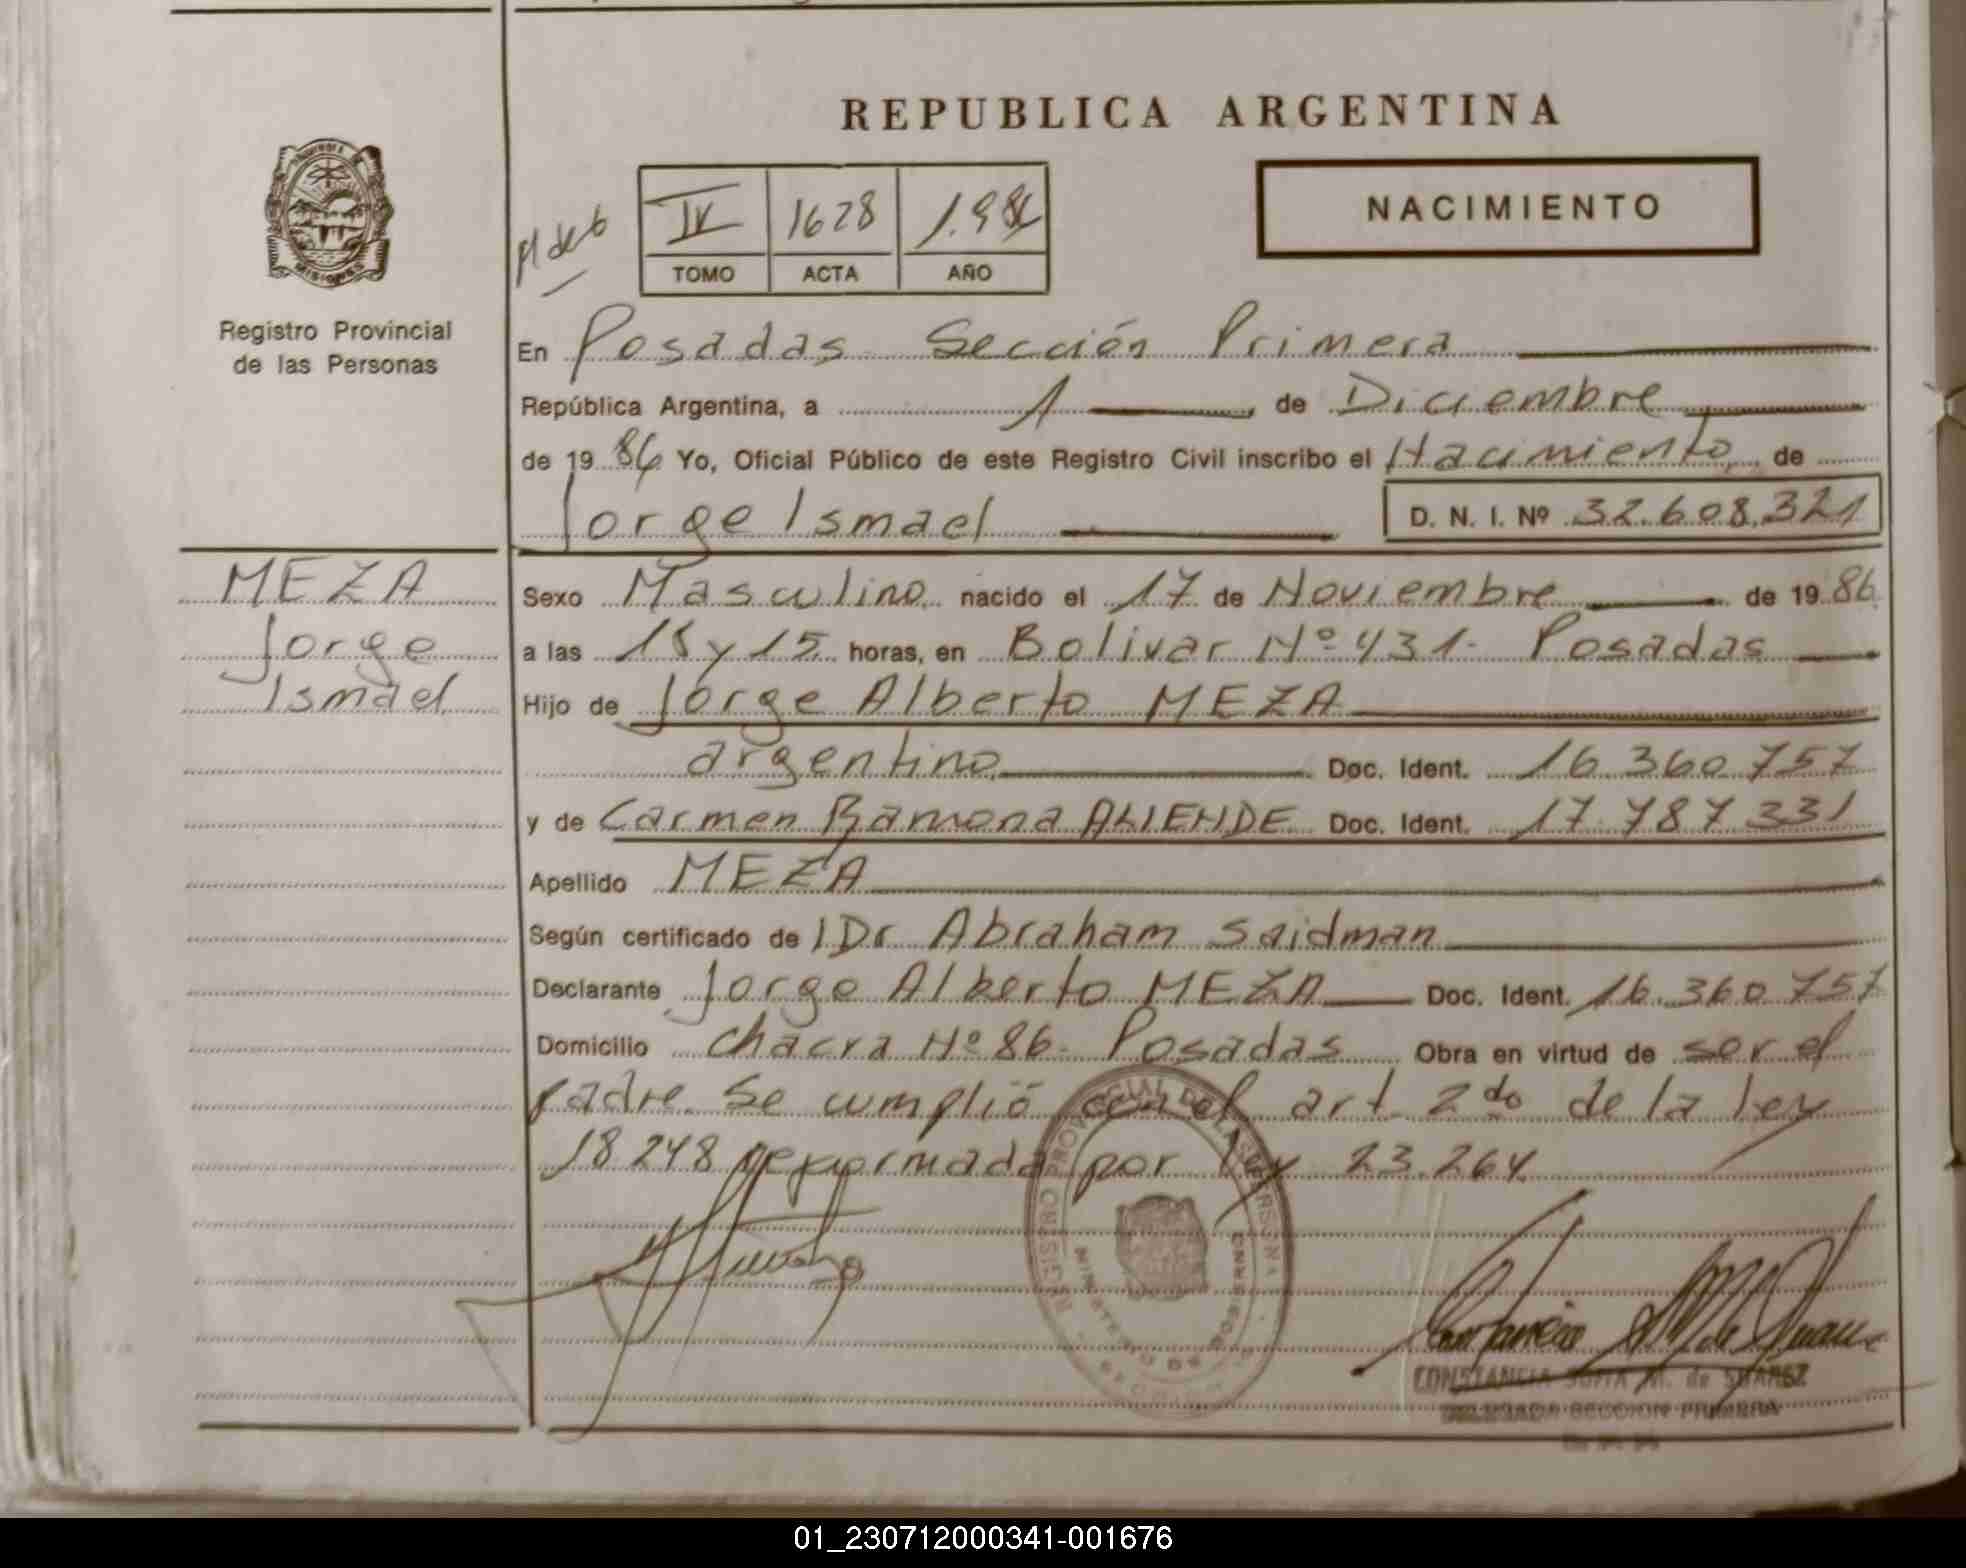 REPUBLICA ARGENTINA
NACIMIENTO
IV 1628 1.986
TOMO ACTA AÑO
MISIONES
Registro Provincial
de las Personas
En Posadas Sección Primera
República Argentina, a 1 de Diciembre
de 19 86 Yo, Oficial Público de este Registro Civil inscribo el Nacimiento de
Jorge Ismael D. N. I. Nº 32.608.321
MEZA
Jorge
Ismael
Sexo Masculino nacido el 17 de Noviembre de 19 86
a las 15 y 15 horas, en Bolivar Nº 431. Posadas
Hijo de Jorge Alberto MEZA
argentino Doc. Ident. 16.360.757
y de Carmen Ramona ALIENDE Doc. Ident. 17.787.331
Apellido MEZA
Según certificado de l Dr Abraham Saidman
Declarante Jorge Alberto MEZA Doc. Ident. 16.360.757
Domicilio Chacra Nº 86. Posadas Obra en virtud de ser el
padre. Se cumplió con el art. 2do de la ley
18.248 reformada por ley 23.264
REGISTRO PROVINCIAL DE LAS PERSONAS
MINISTERIO DE GOBIERNO
CONSTANCIA SOFIA M. de SUAREZ
DELEGADA SECCION PRIMERA
01_230712000341-001676